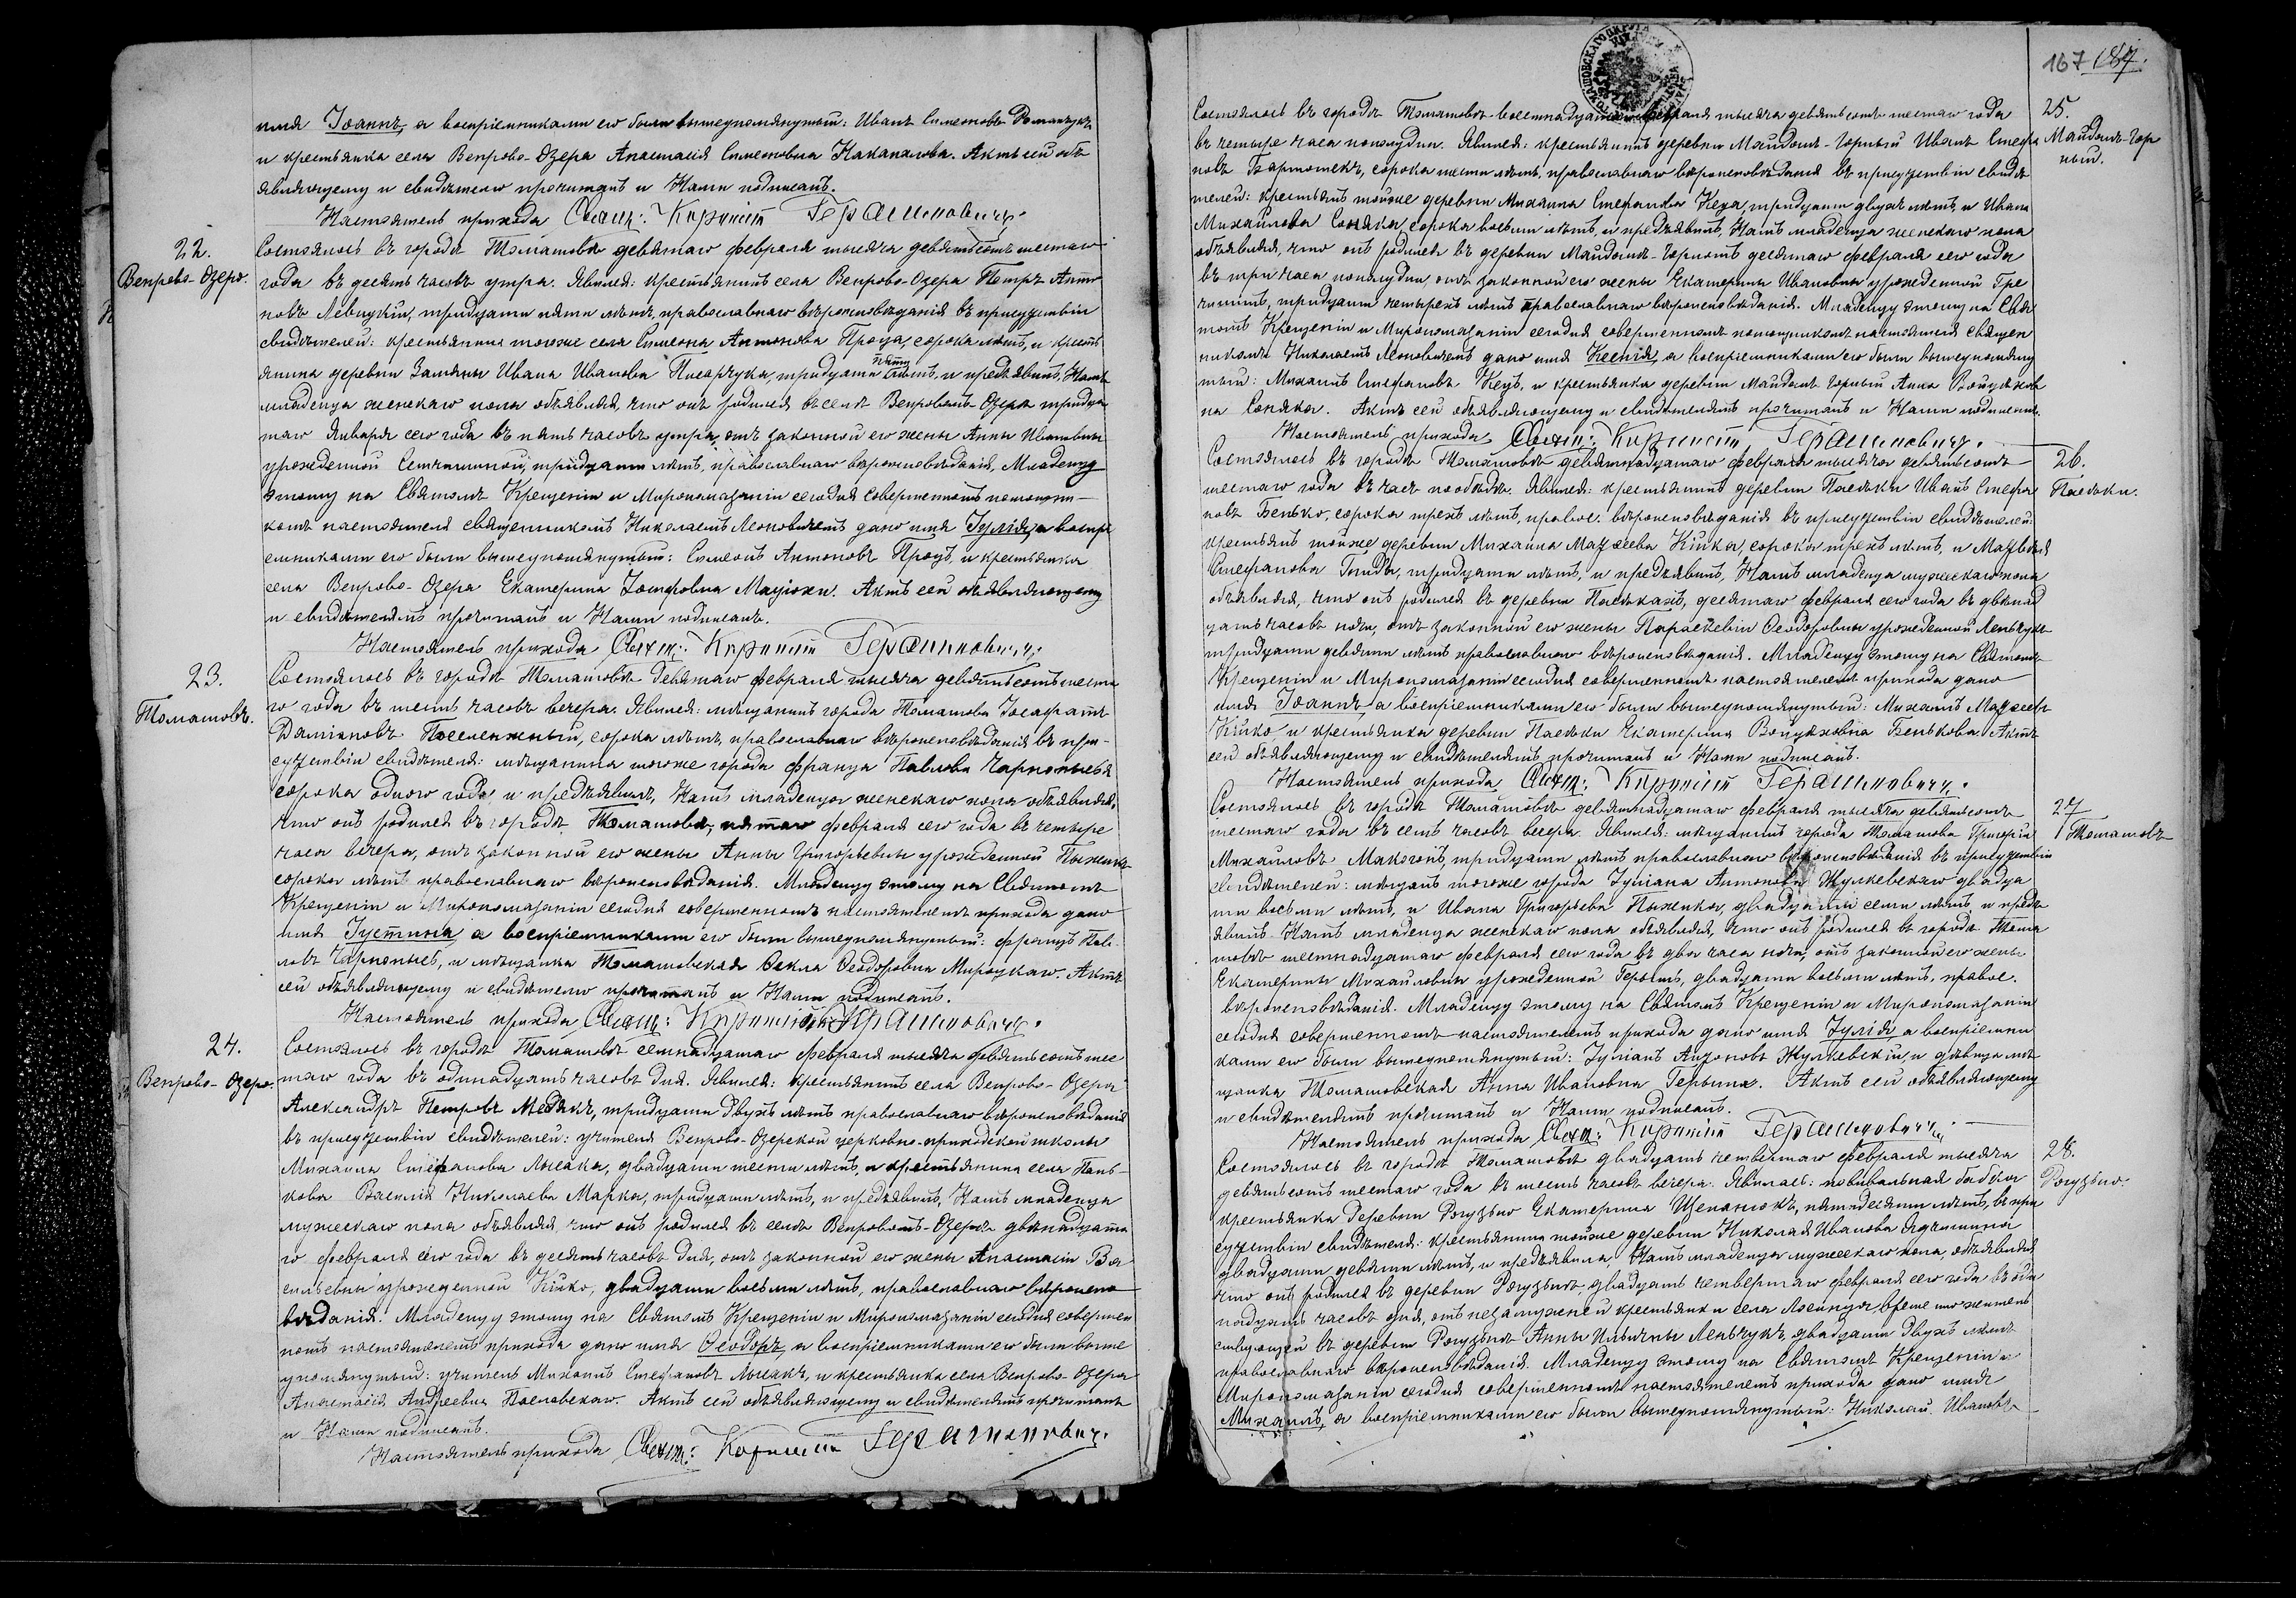 имя Іоаннъ, а воспріемниками его были вышеупомянутый: Иванъ Симеоновъ Романчукъ
и крестьянка села Вепрово-Озера Анастасія Симеоновна Наканалова. Актъ сей объ
являющему и свидѣтелю прочитанъ и Нами подписанъ.
Настоятель прихода Свящ: Кириллъ Герасимовичъ.
22.
Вепрово-Озеро.
Состоялось въ городѣ Томашовѣ девятаго февраля тысяча девятьсотъ шестаго
года въ десять часовъ утра. Явился: крестьянинъ села Вепрово-Озера Петръ Анто
новъ Левицкій, тридцати пяти лѣтъ, православнаго вѣроисповѣданія въ присутствіи
свидѣтелей: крестьянина тогоже села Симеона Антонова Проца, сорока лѣтъ, и кресть
янина деревни Замяны Ивана Иванова Писарчука, тридцати пяти лѣтъ, и предъявилъ Намъ
младенца женскаго пола объявляя, что онъ родился въ селѣ Вепровомъ-Озерѣ тридца
таго Января сего года въ пять часовъ утра, отъ законной его жены Анны Ивановны
урожденной тридцати лѣтъ, православнаго вѣроисповѣданія. Младенцу
этому на Святомъ Крещеніи и Миропомазаніи сегодня совершенномъ помощни-
комъ настоятеля священникомъ Николаемъ Леоновичемъ дано имя Іулія, а воспрі
емниками его были вышеупомянутый: Симеонъ Антоновъ Процъ, и крестьянка
села Вепрово-Озера Екатерина Іосифовна Мацюхи. Актъ сей объявляющему
и свидѣтелямъ прочитанъ и Нами подписанъ.
Настоятель прихода Свящ: Кириллъ Герасимовичъ.
23.
Томашовъ.
Состоялось въ городѣ Томашовѣ девятаго февраля тысяча девятьсотъ шеста
го года въ шесть часовъ вечера. Явился: мѣщанинъ города Томашова Іосафатъ
Даміановъ сорока лѣтъ, православнаго вѣроисповѣданія въ при-
сутствіи свидѣтеля: мѣщанина тогоже города Франца Павлова Чарнопыся
сорока одного года, и предъявилъ Намъ младенца женскаго пола объявляя,
что онъ родился въ городѣ Томашовѣ, пятаго февраля сего года въ четыре
часа вечера, отъ законной его жены Анны Григорьевны урожденной Пыжикъ
сорока лѣтъ православнаго вѣроисповѣданія. Младенцу этому на Святомъ
Крещеніи и Миропомазаніи сегодня совершенномъ настоятелемъ прихода дано
имя Іустина а воспріемниками его были вышеупомянутый: Францъ Пав
ловъ Чарнопысъ, и мѣщанка Томашовская Ѳекла Ѳеодоровна Мироцкаю. Актъ
сей объявляющему и свидѣтелю прочитанъ и Нами подписанъ.
Настоятель прихода Свящ: Кириллъ Герасимовичъ.
24.
Вепрово-Озеро.
Состоялось въ городѣ Томашовѣ семнадцатаго февраля тысяча девятьсотъ шес
таго года въ одинадцать часовъ дня. Явился: крестьянинъ села Вепрово-Озера
Александръ Петровъ Медякъ, тридцати двухъ лѣтъ православнаго вѣроисповѣданія
въ присутствіи свидѣтелей: учителя Вепрово-Озерской церковно-приходской школы
Михаила Стефанова Лысака, двадцати шести лѣтъ, и крестьянина села Пань-
кова Василія Николаева Марка, тридцати лѣтъ, и предъявилъ Намъ младенца
мужескаго пола объявляя, что онъ родился въ селѣ Вепровомъ-Озерѣ двѣнадцата
го февраля сего года въ десять часовъ дня, отъ законной его жены Анастасіи Ва
сильевны урожденной Кійко, двадцати восьми лѣтъ, православнаго вѣроиспо
вѣданія. Младенцу этому на Святомъ Крещеніи и Миропомазаніи сегодня совершен
номъ настоятелемъ прихода дано имя Ѳеодоръ, а воспріемниками его были выше
упомянутый: учитель Михаилъ Стефановъ Лысакъ, и крестьянка села Вепрово-Озера
Анастасія Андреевна Пославскаю. Актъ сей объявляющему и свидѣтелямъ прочитанъ
и Нами подписанъ.
Настоятель прихода Свящ: Кириллъ Герасимовичъ.
167 187.
25.
Майданъ-Гор
ный.
Состоялось въ городѣ Томашовѣ восемнадцатаго февраля тысяча девятьсотъ шестаго года
въ четыре часа пополудни. Явился: крестьянинъ деревни Майданъ-Горный Иванъ Стефа
новъ Бартошекъ, сорока шести лѣтъ, православнаго вѣроисповѣданія въ присутствіи свидѣ
телей: крестьянъ тойже деревни Михаила Стефанова Кеца, тридцати двухъ лѣтъ, и Ивана
Михайлова Соняка, сорока восьми лѣтъ, и предъявилъ Намъ младенца женскаго пола
объявляя, что онъ родился въ деревни Майданѣ-Горномъ десятаго февраля сего года
въ три часа пополудни, отъ законной его жены Екатерины Ивановны урожденной Гре
чинъ, тридцати четырехъ лѣтъ православнаго вѣроисповѣданія. Младенцу этому на Свя
томъ Крещеніи и Миропомазаніи сегодня совершенномъ помощникомъ настоятеля священ
никомъ Николаемъ Леоновичемъ дано имя Ксенія, а воспріемниками его были вышеупомяну
тый: Михаилъ Стефановъ Кецъ, и крестьянка деревни Майданъ-Горный Анна Войцѣхов
на Соняка. Актъ сей объявляющему и свидѣтелямъ прочитанъ и Нами подписанъ.
Настоятель прихода Свящ: Кириллъ Герасимовичъ.
26.
Пасѣки.
Состоялось въ городѣ Томашовѣ девятнадцатаго февраля тысяча девятьсотъ
шестаго года въ часъ пообѣдѣ. Явился: крестьянинъ деревни Пасѣки Иванъ Стефа
новъ Бенько, сорока трехъ лѣтъ, правос. вѣроисповѣданія въ присутствіи свидѣтелей:
крестьянъ тойже деревни Михаила Матѳеева Кійка, сорока трехъ лѣтъ, и Матвѣя
Стефанова Гниды, тридцати лѣтъ, и предъявилъ Намъ младенца мужескаго пола
объявляя, что онъ родился въ деревни Пасѣкахъ, десятаго февраля сего года въ двѣнад
цать часовъ ночи, отъ законной его жены Параскевіи Ѳеодоровны урожденной Леньчукъ
тридцати девяти лѣтъ православнаго вѣроисповѣданія. Младенцу этому на Святомъ
Крещеніи и Миропомазаніи сегодня совершенномъ настоятелемъ прихода дано
имя Іоаннъ, а воспріемниками его были вышеупомянутый: Михаилъ Матѳеевъ
Кійко, и крестьянка деревни Пасѣки Екатерина Войцѣховна Бенькова. Актъ
сей объявляющему и свидѣтелямъ прочитанъ и Нами подписанъ.
Настоятель прихода Свящ: Кириллъ Герасимовичъ.
27
Томашовъ
Состоялось въ городѣ Томашовѣ девятнадцатаго февраля тысяча девятьсотъ
шестаго года въ семь часовъ вечера. Явился: мѣщанинъ города Томашова Григорій
Михайловъ Макогонъ, тридцати лѣтъ православнаго вѣроисповѣданія въ присутствіи
свидѣтелей: мѣщанъ тогоже города Іуліана Антонова Жулкевскаго двадца
ти восьми лѣтъ, и Ивана Григорьева Пыжика, двадцати семи лѣтъ и предъ
явилъ Намъ младенца женскаго пола объявляя, что онъ родился въ городѣ Тома
шовѣ шестнадцатаго февраля сего года въ два часа ночи, отъ законной его жены
Екатерины Михайловны урожденной Герынъ, двадцати восьми лѣтъ, правос.
вѣроисповѣданія. Младенцу этому на Святомъ Крещеніи и Миропомазаніи
сегодня совершенномъ настоятелемъ прихода дано имя Іулія а воспріемни
ками его были вышеупомянутый: Іуліанъ Антоновъ Жулкевскій, и дѣвица мѣ
щанка Томашовская Анна Ивановна Герына. Актъ сей объявляющему
и свидѣтелямъ прочитанъ и Нами подписанъ.
Настоятель прихода Свящ: Кириллъ Герасимовичъ.
28.
Рогузьно.
Состоялось въ городѣ Томашовѣ двадцать четвертаго февраля тысяча
девятьсотъ шестаго года въ шесть часовъ вечера. Явилась: повивальная бабка
крестьянка деревни Рогузьно Екатерина Щепанюкъ, пятидесяти лѣтъ, въ при
сутствіи свидѣтеля: крестьянина тойже деревни Николая Иванова
двадцати девяти лѣтъ, и предъявила Намъ младенца мужескаго пола, объявляя
что онъ родился въ деревни Рогузьнѣ, двадцать четвертаго февраля сего года въ оди
надцать часовъ дня, отъ незамужней крестьянки села Лосинца временно жительст
ствующей въ деревни Рогузьнѣ Анны Ильичны Леньчукъ, двадцати двухъ лѣтъ
православнаго вѣроисповѣданія. Младенцу этому на Святомъ Крещеніи и
Миропомазаніи сегодня совершенномъ настоятелемъ прихода дано имя
Михаилъ, а воспріемниками его были вышеупомянутый: Николай Ивановъ